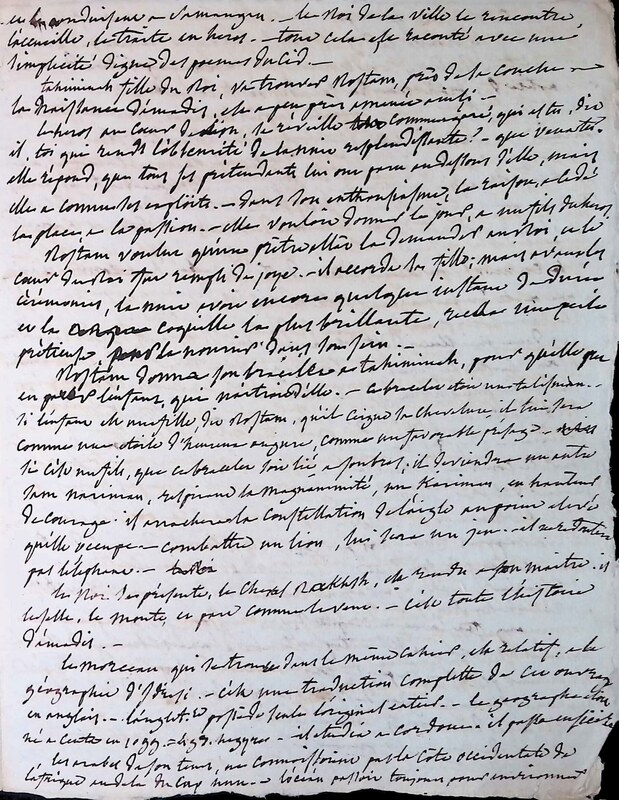 et le conduisent a Samangan. - le Roi de la ville le rencontre,
l'accueille, le traite en héros - tout cela est raconté avec une
simplicité digne des poemes du Cid. -
tahiminah fille du Roi, va trouver Rostam, près de sa couche -
la naissance d'amadis, est a peu près amenée ainsi -
le heros au cœur de lion, se réveille qui es tu, dit
il, toi qui rends l'obscurité de la nuit resplendissante? - que veux tu -
elle répond, que tous ses pretendants lui ont paru au dessous d'elle, mais
elle a connu ses exploits. - dans son enthousiasme, la raison, a cédé
la place, a la passion. - elle voudroit donner le jour, a un fils du heros.
Rostam voulut qu'un prêtre allât la demander au Roi, et le
cœur du Roi fut rempli de joye. - il accorde sa fille; mais avant les
cérémonies, la nuit avoit encore quelques instans de durée
et la coquille la plus brillante, reçut une perle
prétieuse, dans son sein. -
Rostam donna son bracelet a tahiminah, pour qu'elle
en l'enfant, qui naîtroit d'elle. - ce bracelet étoit un talisman. -
si l'enfant est une fille, dit Rostam, qu'il ceigne sa chevelure, il lui sera
comme une étoile d'heureux augure, comme un favorable présage -
si c'est un fils, que ce bracelet soit lié a son bras, il deviendra un autre
Sam nariman, respirant la magnanimité, un Kariman, en hauteur
de courage. il arrachera la constellation de l'aigle au point élevé
qu'elle occupe - combattre un lion, lui sera un jeu - il ne redoutera
pas l'éléphant. -
le Roi se présente, le cheval Rakhsh, est rendu a son maitre. il
le selle, le monte, et part comme le vent. - c'est toute l'histoire
d'amadis. -
le morceau qui se trouve dans le même cahier, est relatif, a la
géographie d'Idrisi. - c'est une traduction complette de cet ouvrage
en anglois. - l'anglet. possede seule l'original entier. - le geographe étoit
né a Ceuta en 1099 = 493. hegyre - il étudia a Cordoue. il passa en sicile
les arabes de son tems, ne connoissoient pas la côte occidentale de
l'afrique au dela du Cap - l'océan passoit toujours pour environner